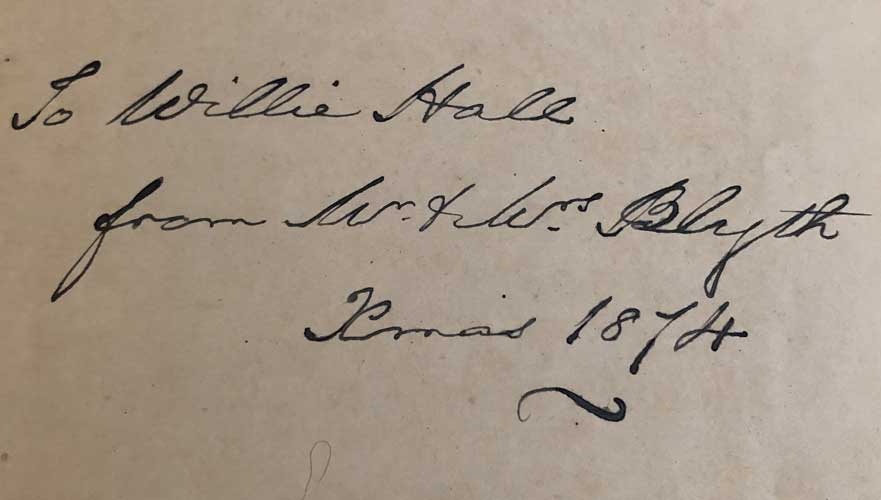 To Willie Hall
from Mr. & Mrs. Blyth
Xmas 1874